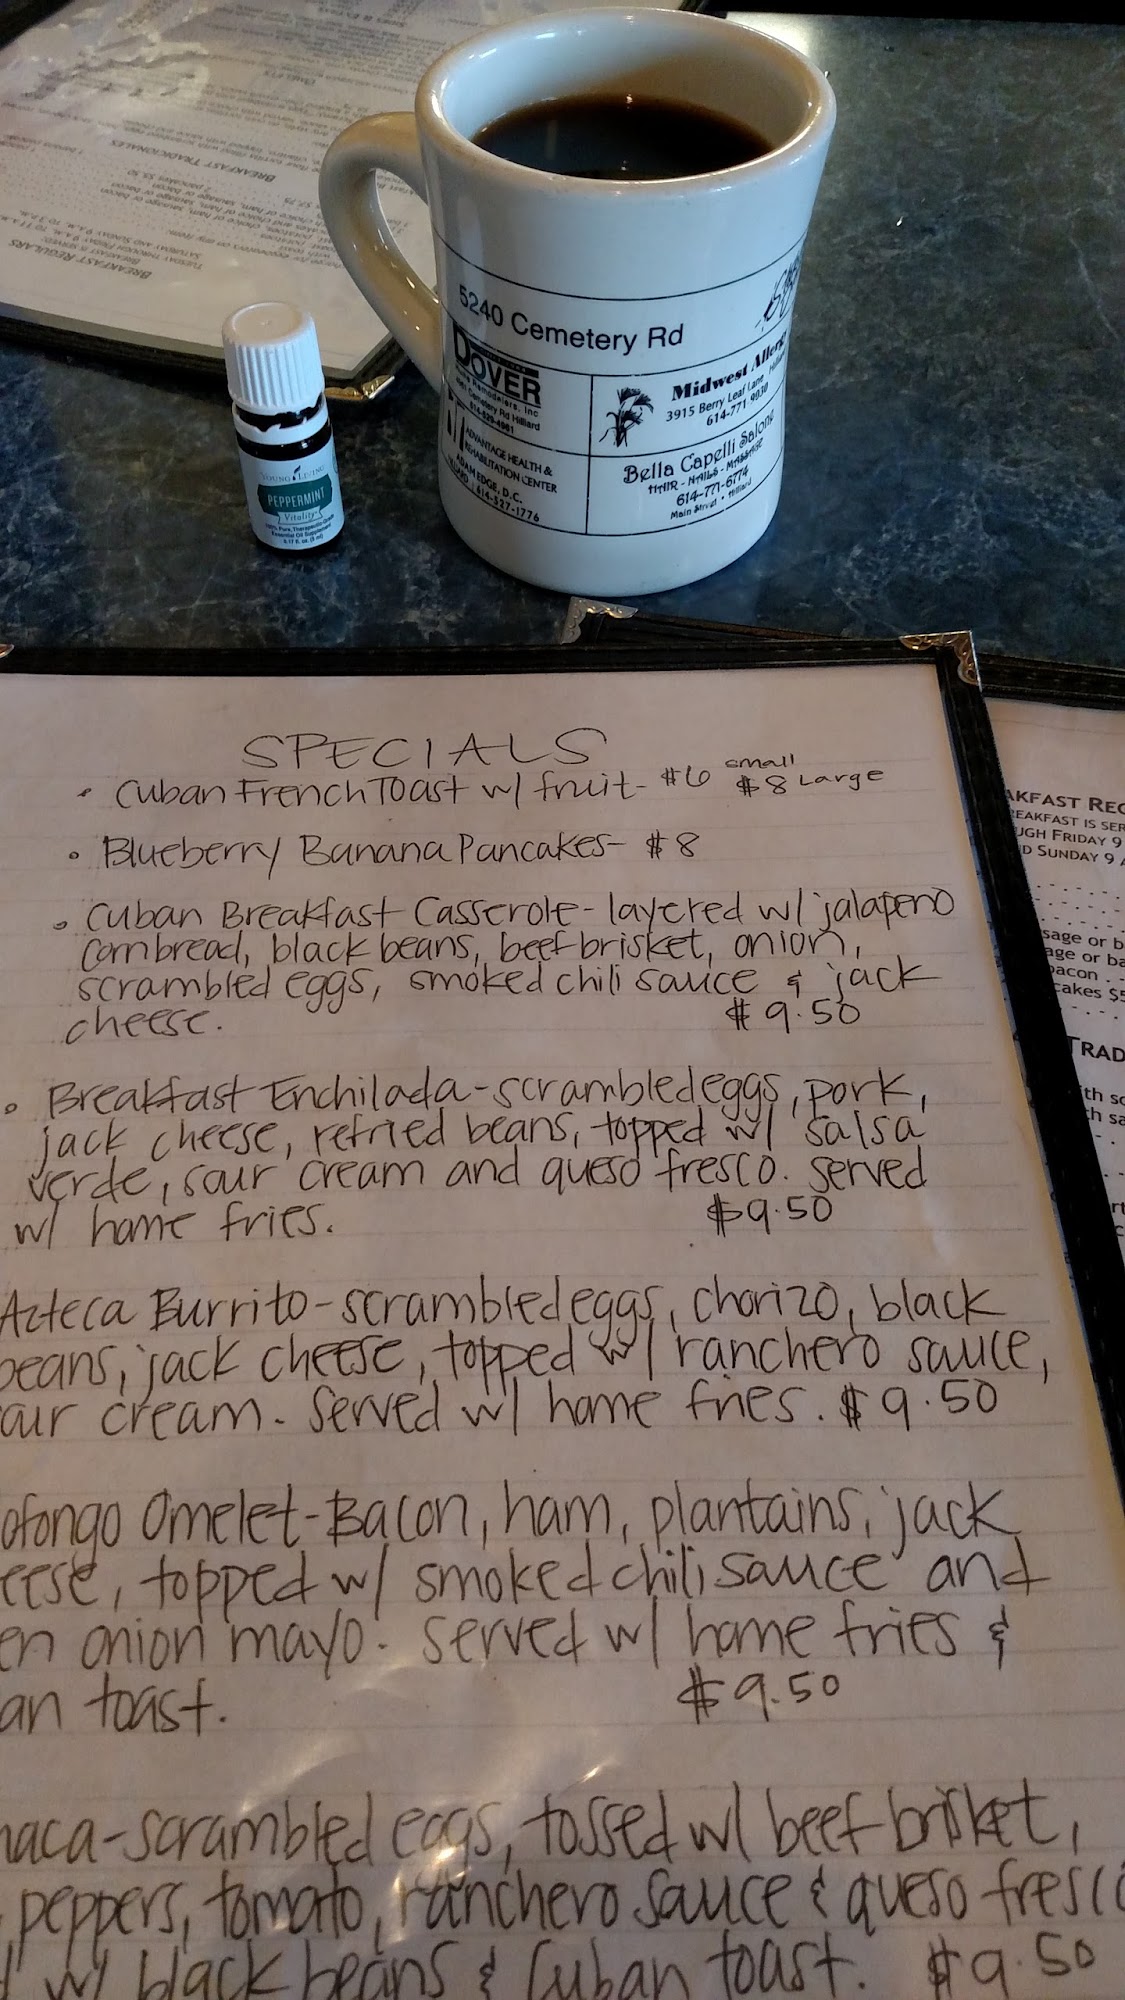 BREAKFAST REGULARS
BREAKFAST IS SERVED
TUESDAY THROUGH FRIDAY 9 A.M. TO 11 A.M.
SATURDAY AND SUNDAY 9 A.M. TO 3 P.M.
BREAKFAST TRADICIONALES
OMELETS
5240 Cemetery Rd
DOVER
Remodelers, Inc
Cemetery Rd Hilliard
ADVANTAGE HEALTH &
REHABILITATION CENTER
ADAM EDGE, D.C.
614-527-1776
Midwest Allerg
3915 Berry Leaf Lane
614-771-9030
Bella Capelli Salone
HAIR - NAILS - MASSAGE
614-771-6774
Main Street • Hilliard
YOUNG LIVING
PEPPERMINT
Vitality
100% Pure, Therapeutic-Grade
Essential Oil Supplement
0.17 fl. oz. (5 ml)
SPECIALS
• Cuban French Toast w/ fruit- $6 small $8 Large
• Blueberry Banana Pancakes- $8
• Cuban Breakfast Casserole- layered w/ jalapeno
cornbread, black beans, beef brisket, onion,
scrambled eggs, smoked chili sauce & jack
cheese. $9.50
• Breakfast Enchilada-scrambled eggs, pork,
jack cheese, refried beans, topped w/ salsa
verde, sour cream and queso fresco. served
w/ home fries. $9.50
Azteca Burrito-scrambled eggs, chorizo, black
beans, jack cheese, topped w/ ranchero sauce,
our cream. Served w/ home fries. $9.50
ofongo Omelet-Bacon, ham, plantains, jack
eese, topped w/ smoked chili sauce and
en onion mayo. served w/ home fries &
an toast. $9.50
haca-scrambled eggs, tossed w/ beef brisket,
peppers, tomato, ranchero sauce & queso fresco
d w/ black beans & Cuban toast. $9.50
AKFAST REG
REAKFAST IS SER
UGH FRIDAY 9
D SUNDAY 9 A
sage or b
age or ba
bacon
cakes $5
TRAD
th sc
h sa